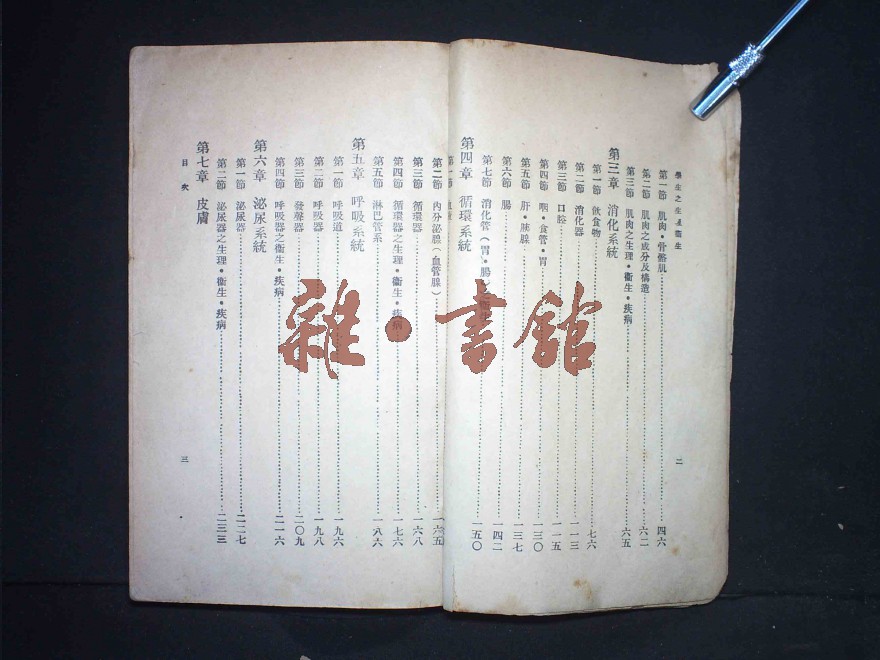 學生之生產衞生
第一節 肌肉•骨骼肌……四六
第二節 肌肉之成分及構造……六二
第三節 肌肉之生理•衞生•疾病……六五
第三章 消化系統
第一節 飲食物……七六
第二節 消化器……一一三
第三節 口腔……一一五
第四節 咽•食管•胃……一三〇
第五節 肝•胰腺……一三七
第六節 腸……一四二
第七節 消化管（胃•腸）之衞生……一五〇
第四章 循環系統
二
第一節
第二節 內分泌腺（血管腺）……一六五
第三節 循環器……一六八
第四節 循環器之生理•衞生•疾病……一七六
第五節 淋巴管系……一八六
第五章 呼吸系統
第一節 呼吸道……一九六
第二節 呼吸器……一九八
第三節 發聲器……二〇九
第四節 呼吸器之衞生•疾病……二一六
第六章 泌尿系統
第一節 泌尿器……二二七
第二節 泌尿器之生理•衞生•疾病……二三三
第七章 皮膚
目次
三
雜•書館